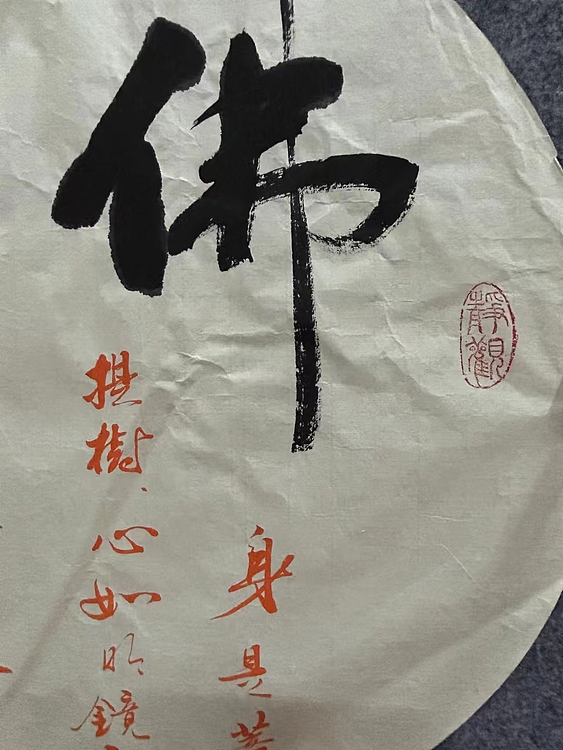 佛
靜觀
身是菩
提樹、心如明鏡